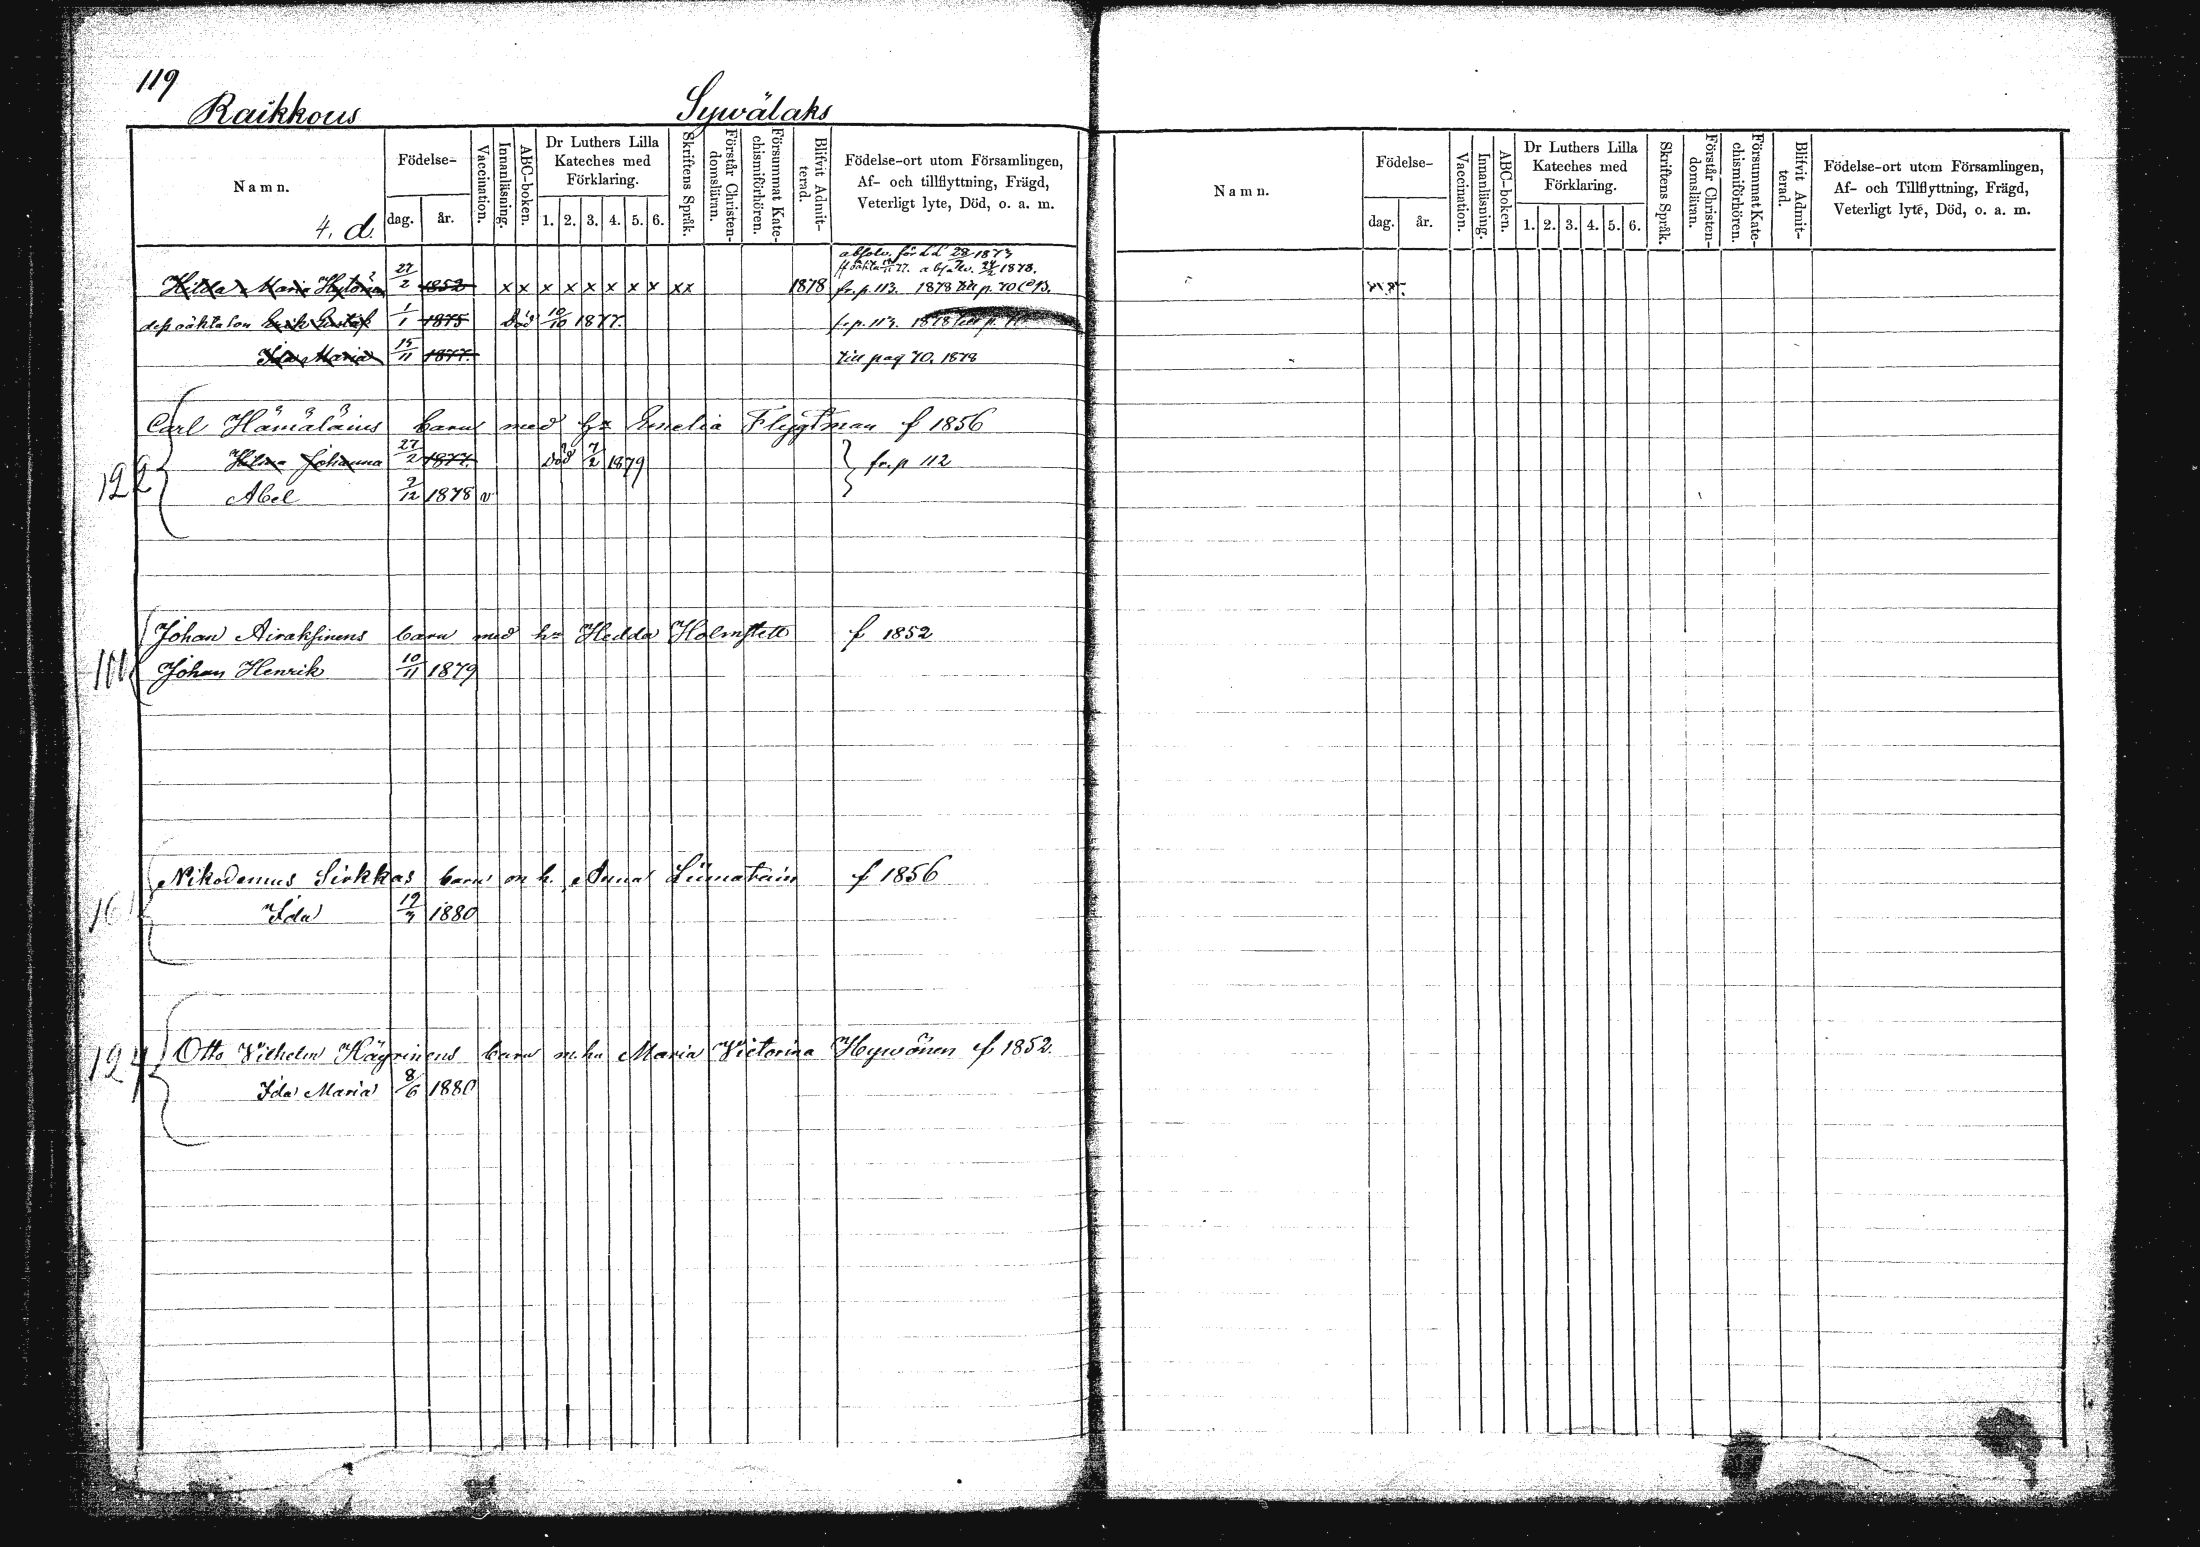 119
Raikkous Sywälaks
Namn. Födelse- dag. år. Vaccination. Innanläsning. ABC-boken. Dr Luthers Lilla Kateches med Förklaring. 1. 2. 3. 4. 5. 6. Skriftens Språk. Förstår Christendomsläran. Försummat Katechismiförhören. Blifvit Admitterad. Födelse-ort utom Församlingen, Af- och tillflyttning, Frägd, Veterligt lyte, Död, o. a. m.
4. d.
absolv. för 1873
1878.
Hilda Maria 27/2 1852 x x x x x x x x xx 1878 fr. p. 113. 1878 till p. 70
oäkta son Erik Gustaf 1/1 1875 Död 10/10 1877. fr. p. 113. 1878 till p.
Ida Maria 15/11 1877. till pag 70. 1878
Carl Hämäläins barn med hn Emelia Flygtman f 1856
Hilma Johanna 27/2 1877. Död 7/2 1879 fr. p 112
122 Abel 9/12 1878 v
Johan Airaksinens barn med hn Hedda Holmstett f 1852
Johan Henrik 10/11 1879
Nikodemus Sirkkas barn m h. Anna Liimatain f 1856
161 Ida 19/3 1880
124 Otto Vilhelm Käyrinens barn m. hn Maria Victorina Hyvönen f. 1852.
Ida Maria 8/6 1880
Namn. Födelse- dag. år. Vaccination. Innanläsning. ABC-boken. Dr Luthers Lilla Kateches med Förklaring. 1. 2. 3. 4. 5. 6. Skriftens Språk. Förstår Christendomsläran. Försummat Katechismiförhören. Blifvit Admitterad. Födelse-ort utom Församlingen, Af- och Tillflyttning, Frägd, Veterligt lyte, Död, o. a. m.